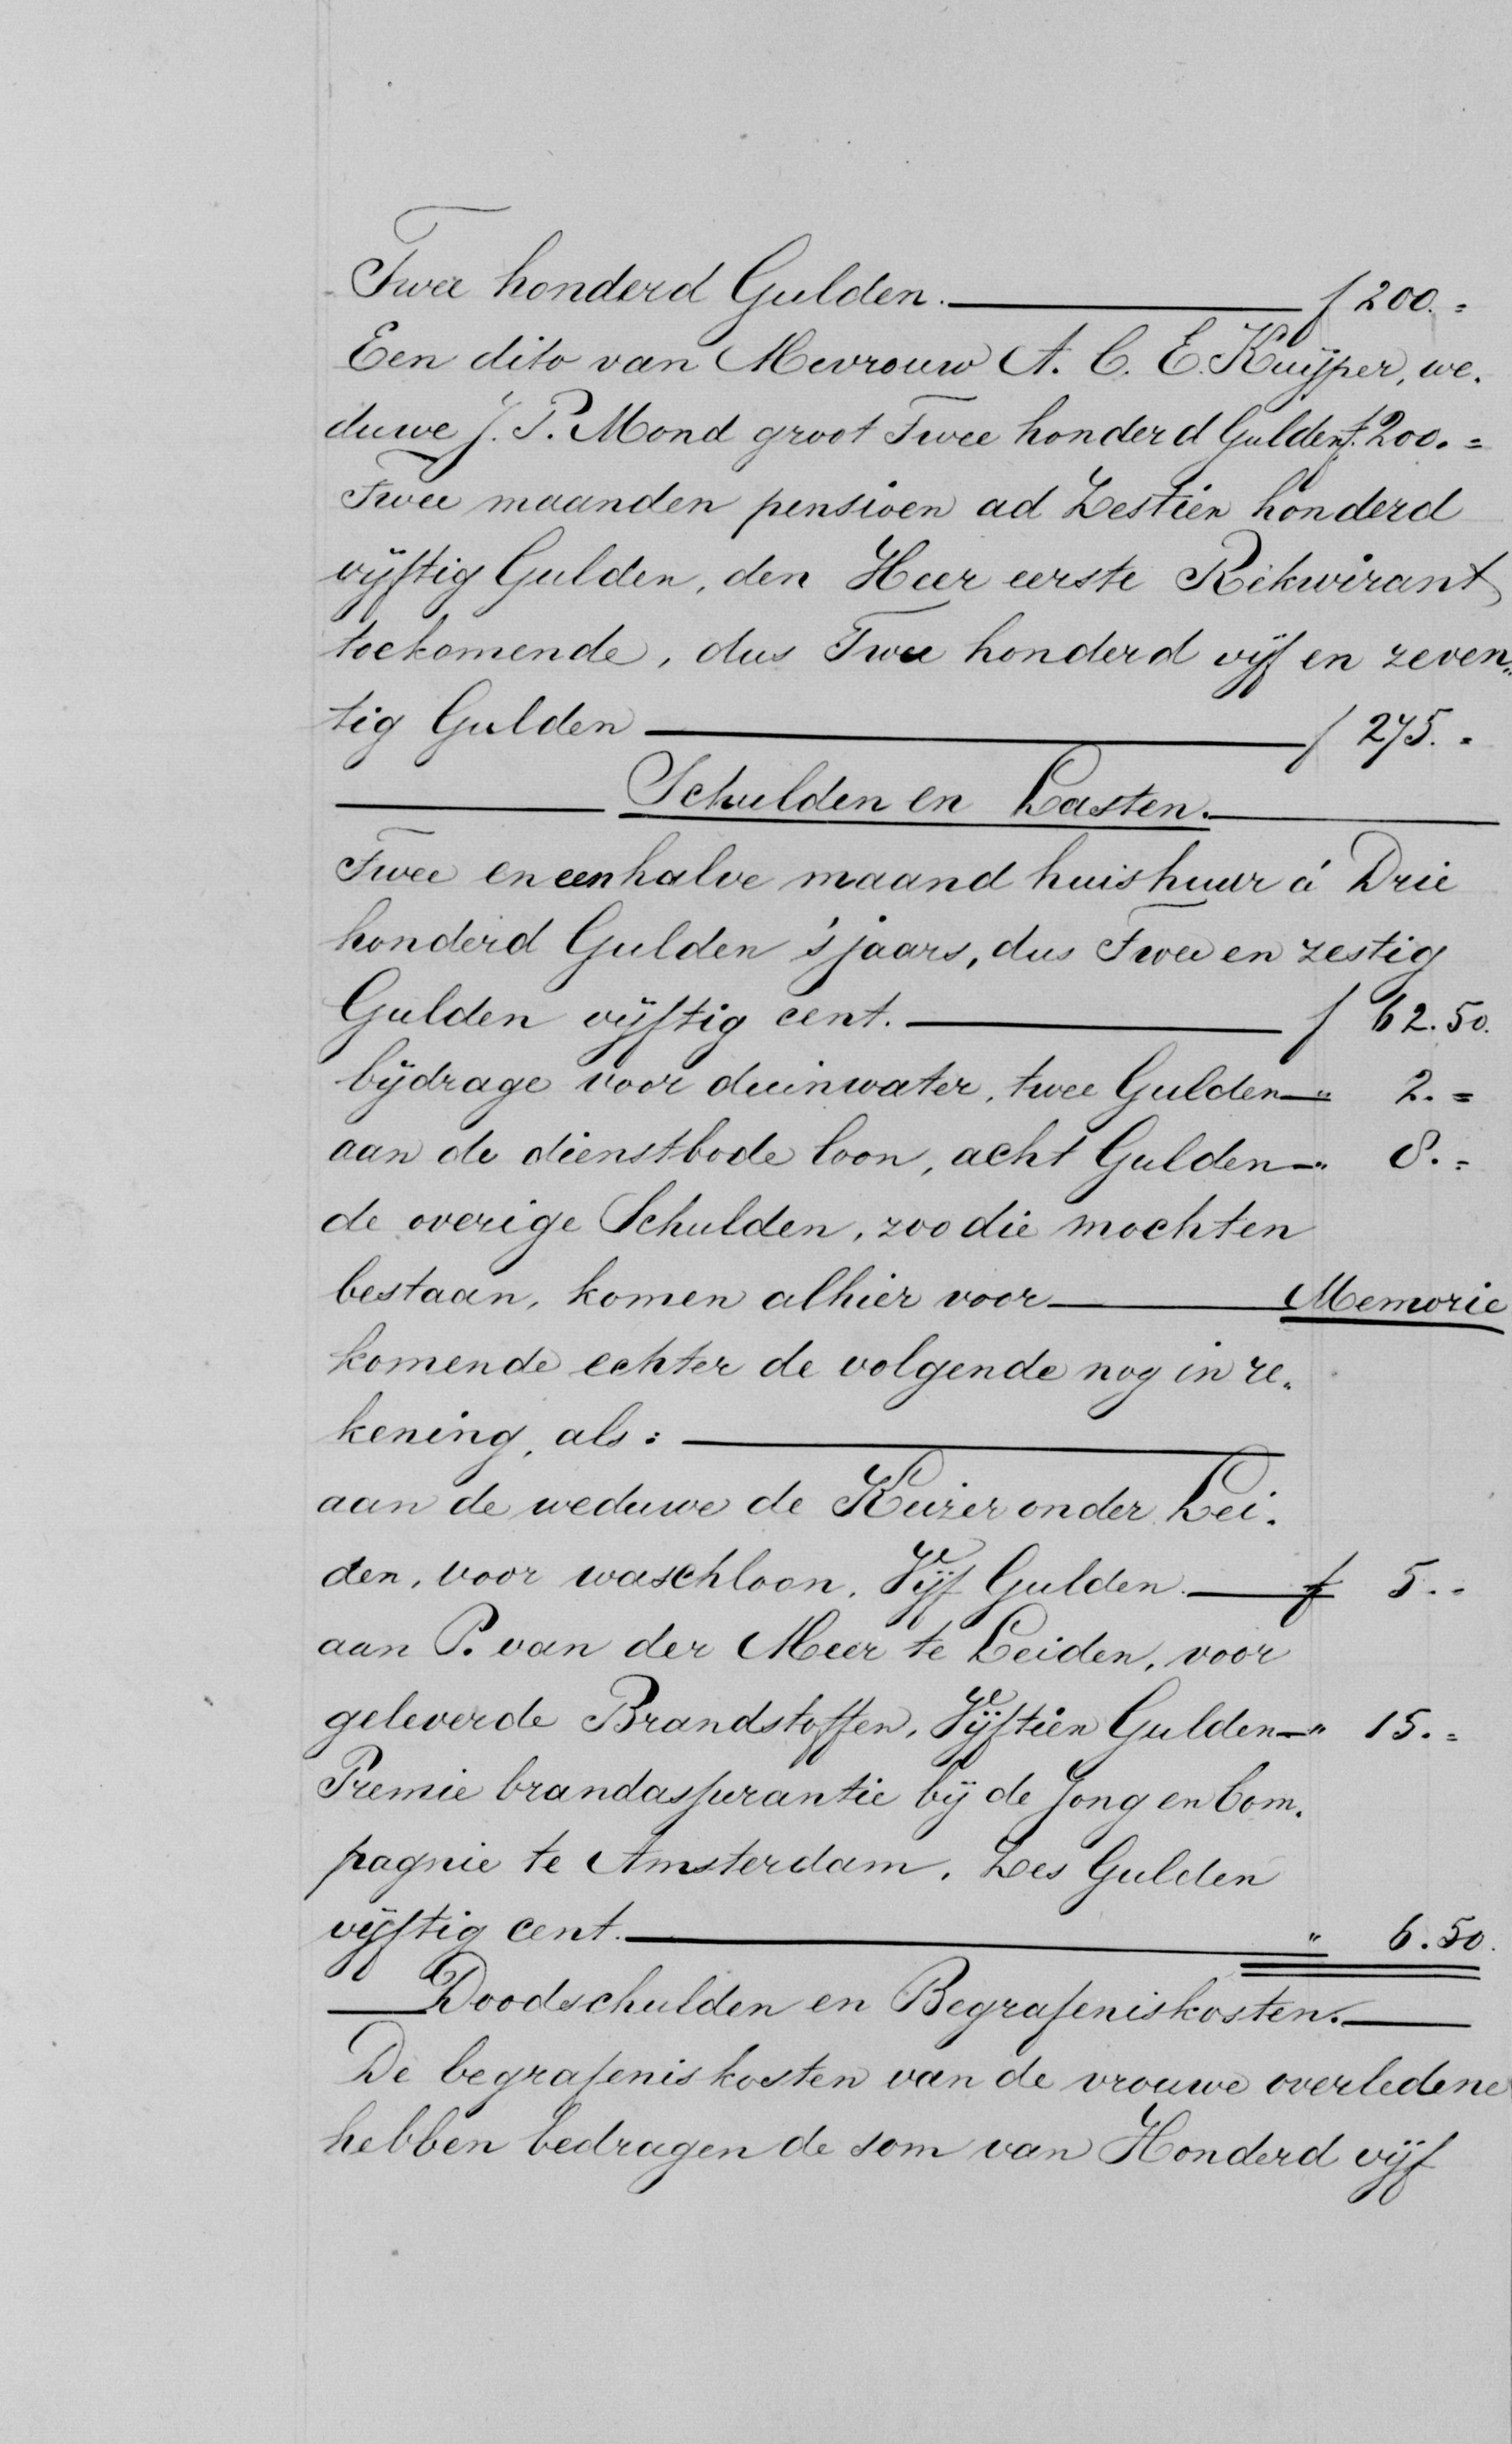 Twee honderd Gulden. f 200.=
Een dito van Mevrouw A. C. E. Kuijper, we„
duwe J. P. Mond groot Twee honderd Gulden f. 200.=
Twee maanden pensioen ad Zestien honderd
vijftig Gulden, den Heer eerste Rekwirant
toekomende, dus Twee honderd vijf en zeven„
tig Gulden f 275.=
Schulden en Lasten.
Twee en een halve maand huishuur á Drie
honderd Gulden 'sjaars, dus Twee en zestig
Gulden vijftig cent. f 62.50.
bijdrage voor duinwater, twee Gulden " 2.=
aan de dienstbode loon, acht Gulden " 8.=
de overige Schulden, zoo die mochten
bestaan, komen alhier voor Memorie
komende echter de volgende nog in re„
kening, als:
aan de weduwe de Keizer onder Lei„
den, voor waschloon, Vijf Gulden. f 5.=
aan P. van der Meer te Leiden, voor
geleverde Brandstoffen, Vijftien Gulden " 15.=
Premie brandassurantie bij de Jong en Com„
pagnie te Amsterdam, Zes Gulden
vijftig cent. " 6.50.
Doodschulden en Begrafeniskosten.
De begrafeniskosten van de vrouwe overledene
hebben bedragen de som van Honderd vijf